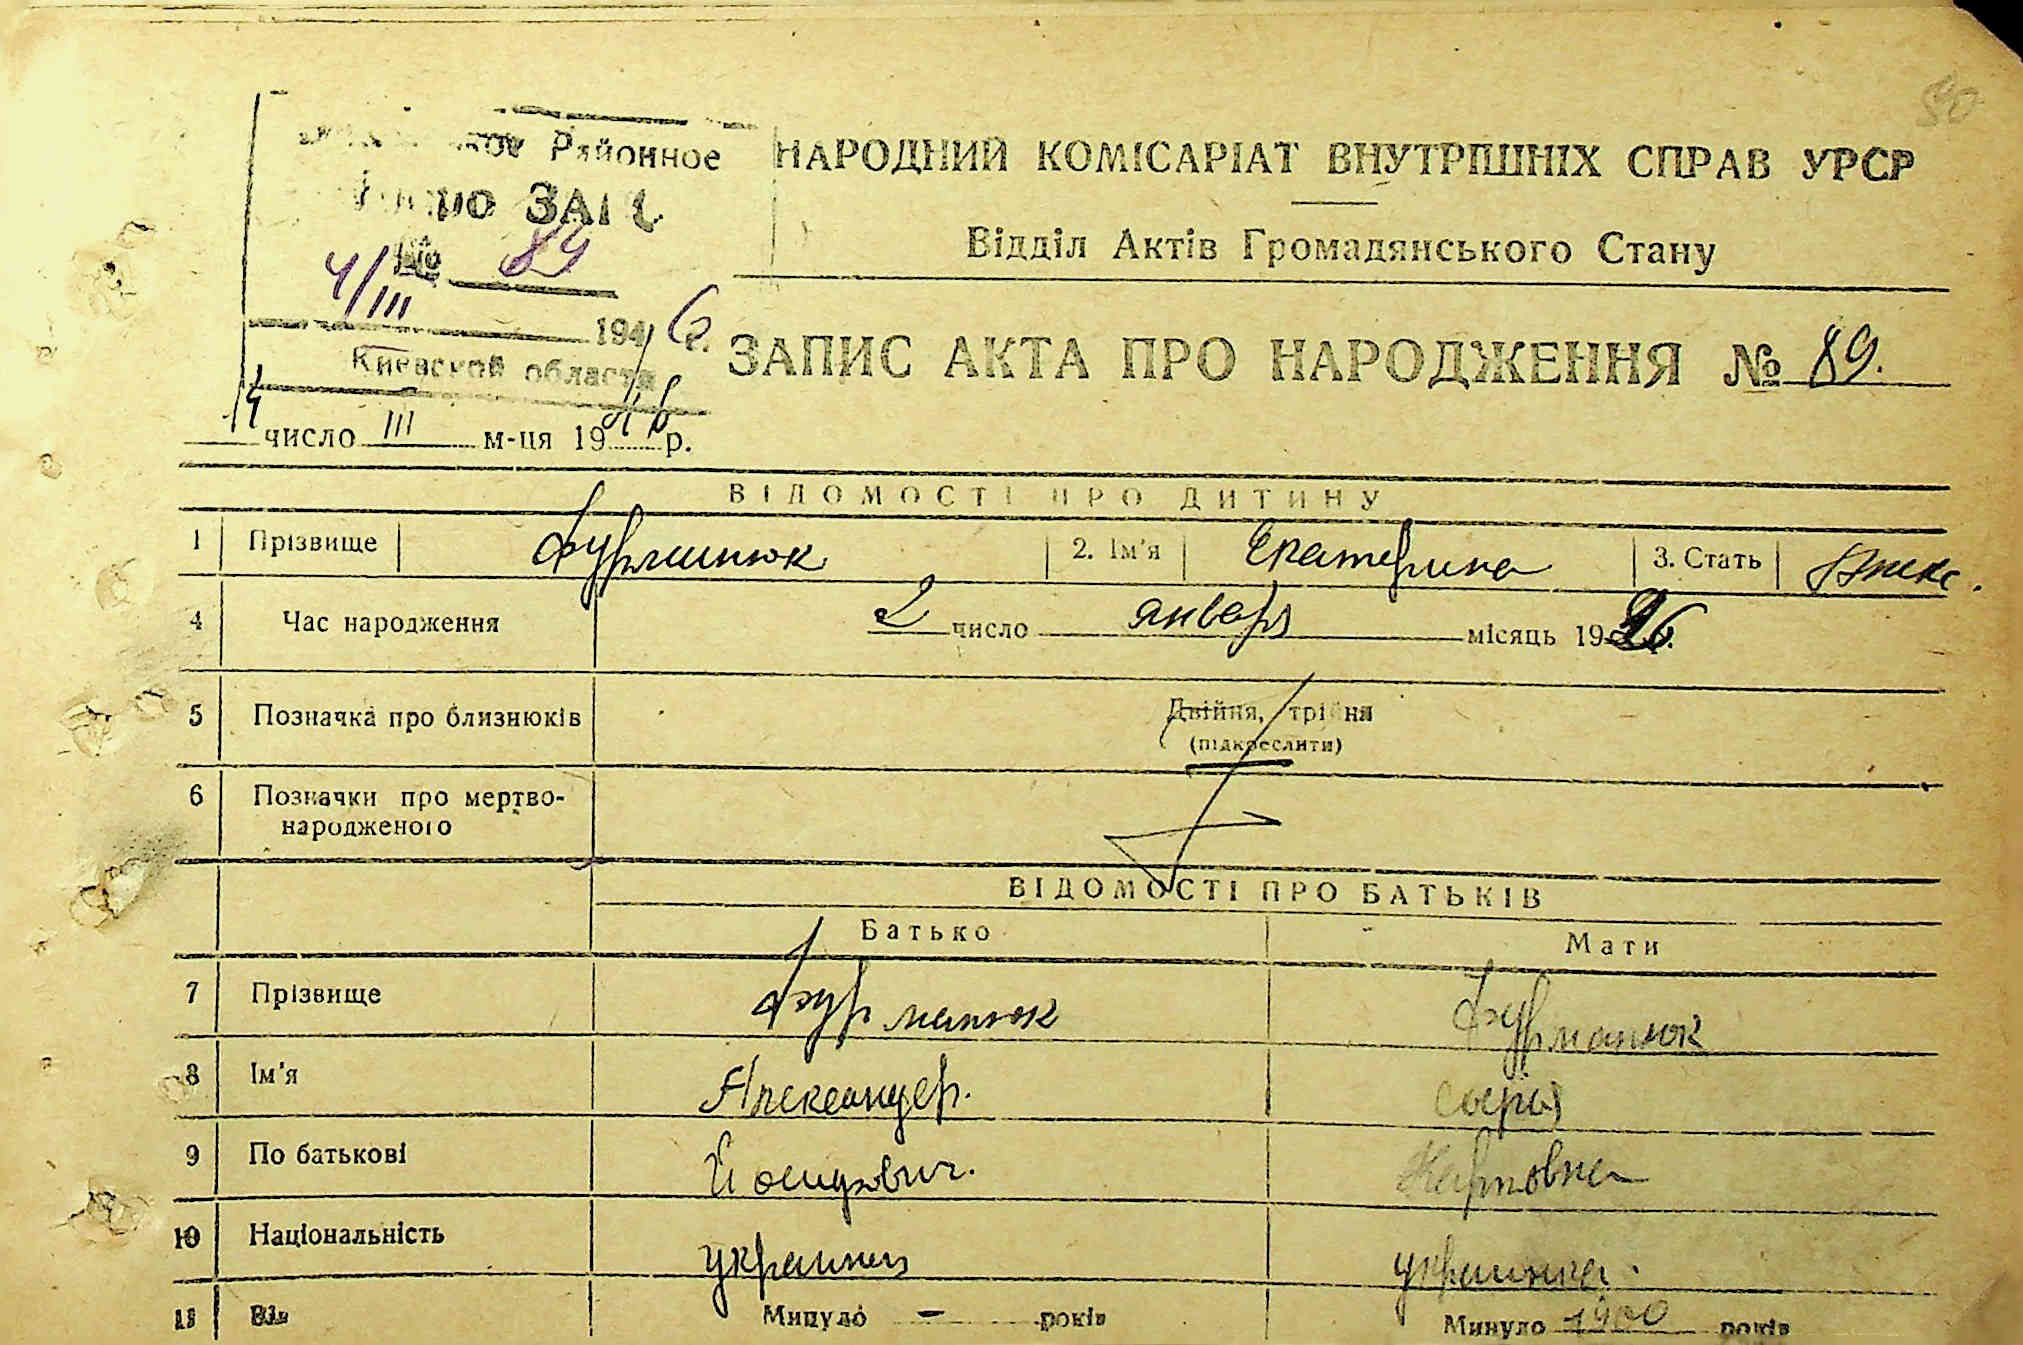 50
Районное
ЗАГС
№ 89
4/III 1946 г.
Киевской области
НАРОДНИЙ КОМІСАРІАТ ВНУТРІШНІХ СПРАВ УРСР
Відділ Актів Громадянського Стану
ЗАПИС АКТА ПРО НАРОДЖЕННЯ № 89.
4 число III м-ця 1946 р.
ВІДОМОСТІ ПРО ДИТИНУ
1 Прізвище Фурманюк 2. Ім'я Екатерина 3. Стать женс.
4 Час народження 2 число января місяць 1926 р.
5 Позначка про близнюків Двійня, трійня
(підкреслити)
6 Позначки про мертво-
народженого
ВІДОМОСТІ ПРО БАТЬКІВ
Батько Мати
7 Прізвище Фурманюк Фурманюк
8 Ім'я Александер. Софія
9 По батькові Йосипович. Карповна
10 Національність украинец украинка.
11 Вік Минуло – років Минуло 1900 років